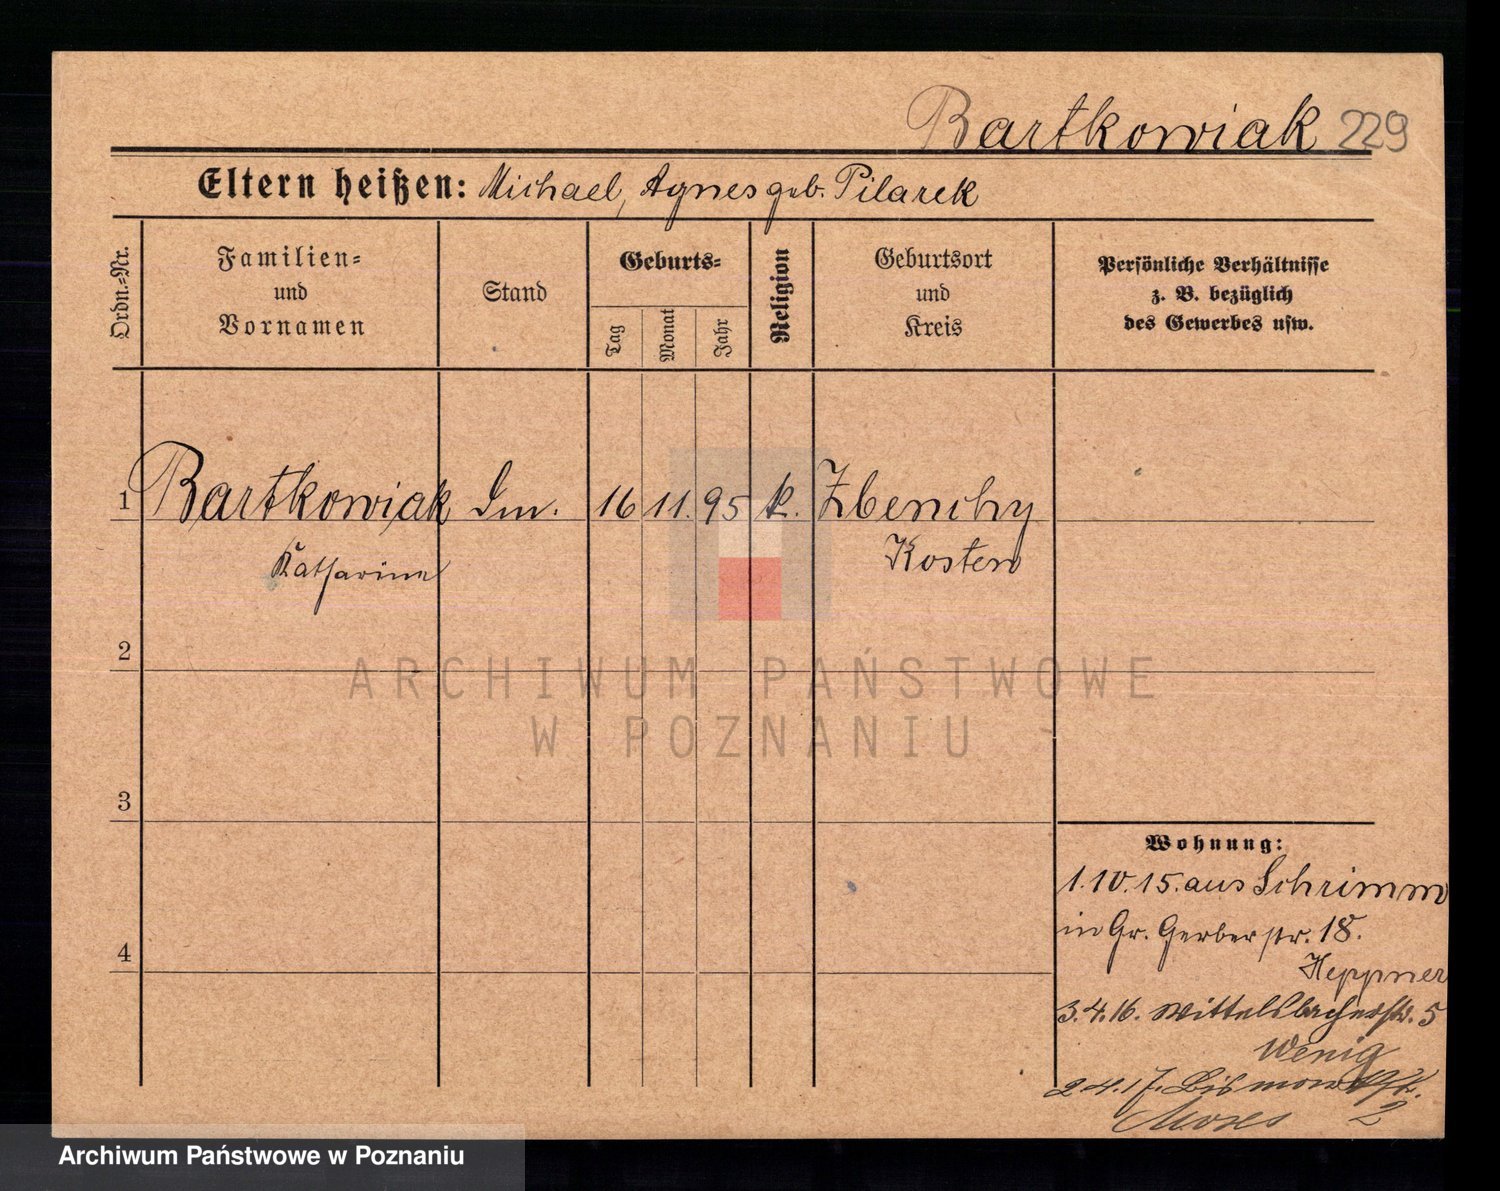 Bartkowiak 229
Eltern heißen: Michael, Agnes geb. Pilarek
Ordn.-Nr.
Familien-
und
Vornamen
Stand
Geburts-
Tag
Monat
Jahr
Religion
Geburtsort
und
Kreis
Persönliche Verhältnisse
z. B. bezüglich
des Gewerbes usw.
1 Bartkowiak 16 11. 95 k. Zbenchy
Katharina Kosten
2
3
4
Wohnung:
1.10.15. aus Schrimm
in Gr. Gerberstr. 18.
Heppner
3.4.16. Wittelsbacherstr. 5
Wenig
2.4.17. Bismarckstr.
Moses 2
ARCHIWUM PAŃSTWOWE
W POZNANIU
Archiwum Państwowe w Poznaniu